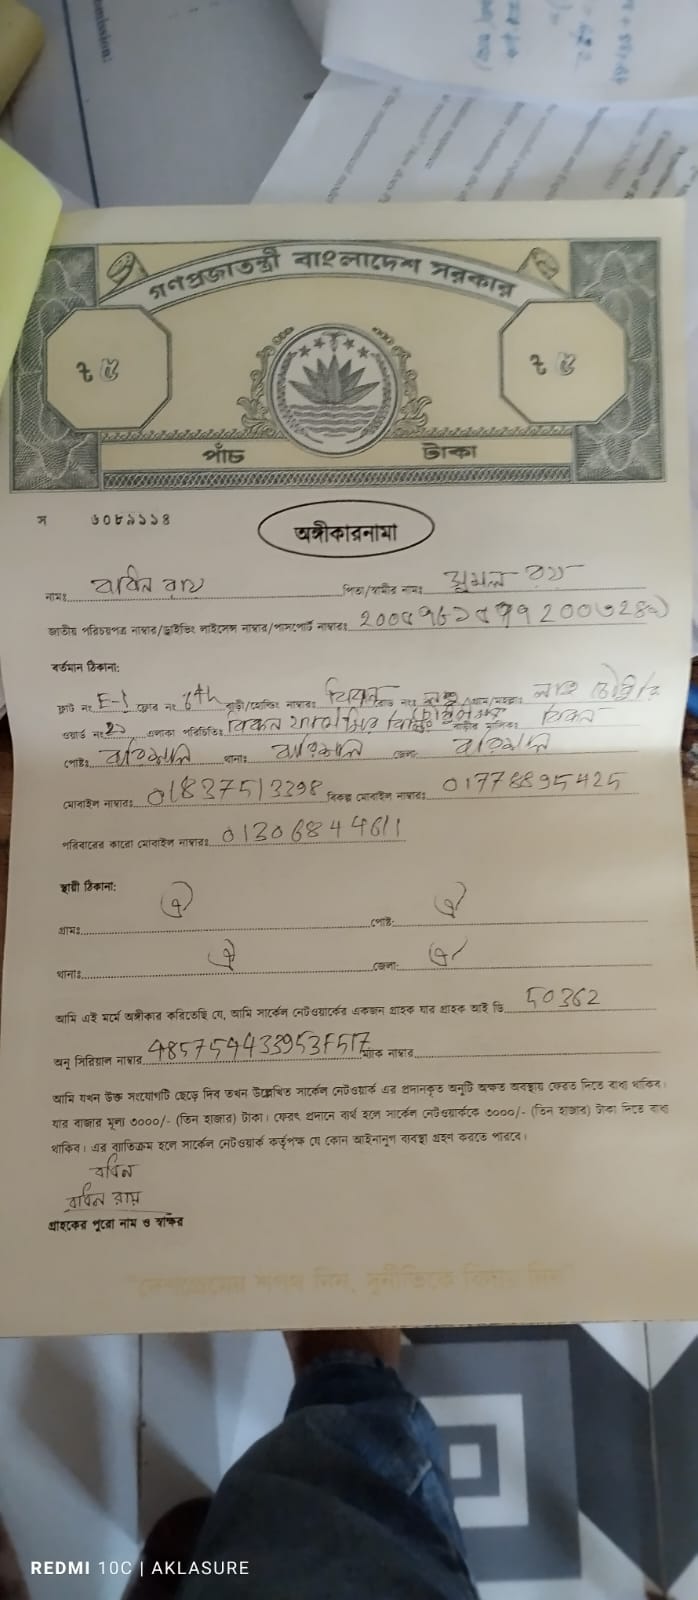 গণপ্রজাতন্ত্রী বাংলাদেশ সরকার
৳ ৫ ৳ ৫
পাঁচ টাকা
স ৬০৮৯১১৪
অঙ্গীকারনামা
নামঃ রবিন রায় পিতা/স্বামীর নামঃ সুমল রায়
জাতীয় পরিচয়পত্র নাম্বার/ড্রাইভিং লাইসেন্স নাম্বার/পাসপোর্ট নাম্বারঃ
বর্তমান ঠিকানা:
ফ্লাট নং E-1 ফ্লোর নং 6th বাড়ী/হোল্ডিং নাম্বারঃ রোড নং গ্রাম/মহল্লাঃ
ওয়ার্ড নং 21 এলাকা পরিচিতিঃ বাড়ীর মালিকঃ
পোষ্টঃ বরিশাল থানাঃ বরিশাল জেলাঃ বরিশাল
মোবাইল নাম্বারঃ 01837513398 বিকল্প মোবাইল নাম্বারঃ 01778895425
পরিবারের কারো মোবাইল নাম্বারঃ 01306844611
স্থায়ী ঠিকানা:
গ্রামঃ ঐ পোষ্ট: ঐ
থানাঃ ঐ জেলা: ঐ
আমি এই মর্মে অঙ্গীকার করিতেছি যে, আমি সার্কেল নেটওয়ার্কের একজন গ্রাহক যার গ্রাহক আই ডি 50362
অনু সিরিয়াল নাম্বার 485754433953F517 ম্যাক নাম্বার
আমি যখন উক্ত সংযোগটি ছেড়ে দিব তখন উল্লেখিত সার্কেল নেটওয়ার্ক এর প্রদানকৃত অনুটি অক্ষত অবস্থায় ফেরত দিতে বাধ্য থাকিব।
যার বাজার মূল্য ৩০০০/- (তিন হাজার) টাকা। ফেরৎ প্রদানে ব্যর্থ হলে সার্কেল নেটওয়ার্ককে ৩০০০/- (তিন হাজার) টাকা দিতে বাধ্য
থাকিব। এর ব্যতিক্রম হলে সার্কেল নেটওয়ার্ক কর্তৃপক্ষ যে কোন আইনানুগ ব্যবস্থা গ্রহণ করতে পারবে।
রবিন
রবিন রায়
গ্রাহকের পুরো নাম ও স্বাক্ষর
"দেশপ্রেমের শপথ নিন, দুর্নীতিকে বিদায় দিন"
REDMI 10C | AKLASURE